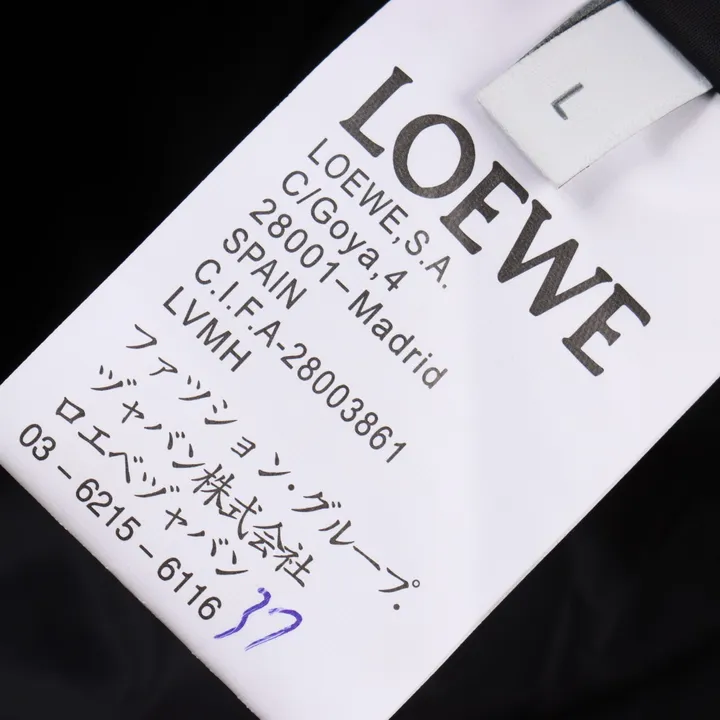 L
LOEWE
LOEWE,S.A.
C/Goya,4
28001-Madrid
SPAIN
C.I.F.A-28003861
LVMH
ファツション・グループ.
ヅャバン株式会社
ロエベヅャバン
03-6215-6116
37